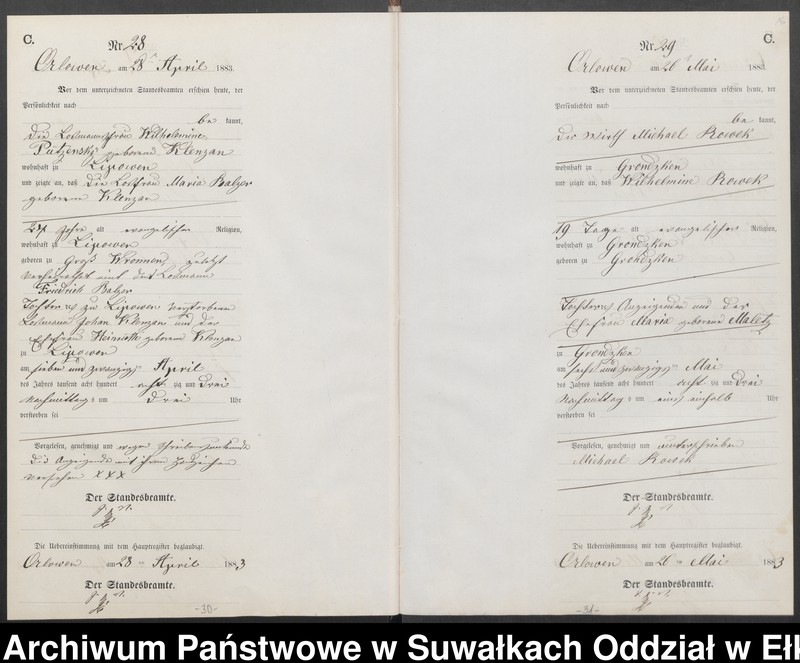 C.
Nr. 28
Orlowen am 28 April 1883.
Vor dem unterzeichneten Standesbeamten erschien heute, der
Persönlichkeit nach
be kannt,
die Losmannsfrau Wilhelmine
geborene Klenzan
wohnhaft zu Lipowen
und zeigte an, daß die Losfrau Maria Balzer
geborene Klenzan
Jahre alt evangelischer Religion,
wohnhaft zu Lipowen
geboren zu Groß zuletzt
verheirathet mit dem Losmann
Friedrich Balzer
Tochter des zu Lipowen verstorbenen
Losmann Johan Klenzan und der
Ehefrau geborene Klenzan
zu Lipowen
am sieben und zwanzigsten April
des Jahres tausend acht hundert acht zig und drei
Nachmittags um drei Uhr
verstorben sei
Vorgelesen, genehmigt und wegen Schreibensunkunde
die Anzeigende mit ihrem Handzeichen
versehen XXX
Der Standesbeamte.
Die Uebereinstimmung mit dem Hauptregister beglaubigt.
Orlowen am 28 ten April 1883
Der Standesbeamte.
-30-
Nr. 29
C.
Orlowen am 26 Mai 188
Vor dem unterzeichneten Standesbeamten erschien heute, der
Persönlichkeit nach
be kannt,
der Wirth Michael Rowek
wohnhaft zu Grondzken
und zeigte an, daß Wilhelmine Rowek
19 Tage alt evangelischer Religion,
wohnhaft zu Grondzken
geboren zu Grondzken
Tochter des Anzeigenden und der
Ehefrau Maria geborene Maletz
zu Grondzken
am sechs und zwanzigsten Mai
des Jahres tausend acht hundert acht zig und drei
Nachmittags um ein einhalb Uhr
verstorben sei
Vorgelesen, genehmigt und unterschrieben
Michael Rowek
Der Standesbeamte.
Die Uebereinstimmung mit dem Hauptregister beglaubigt.
Orlowen am 26 ten Mai 1883
Der Standesbeamte.
-31-
Archiwum Państwowe w Suwałkach Oddział w Ełk